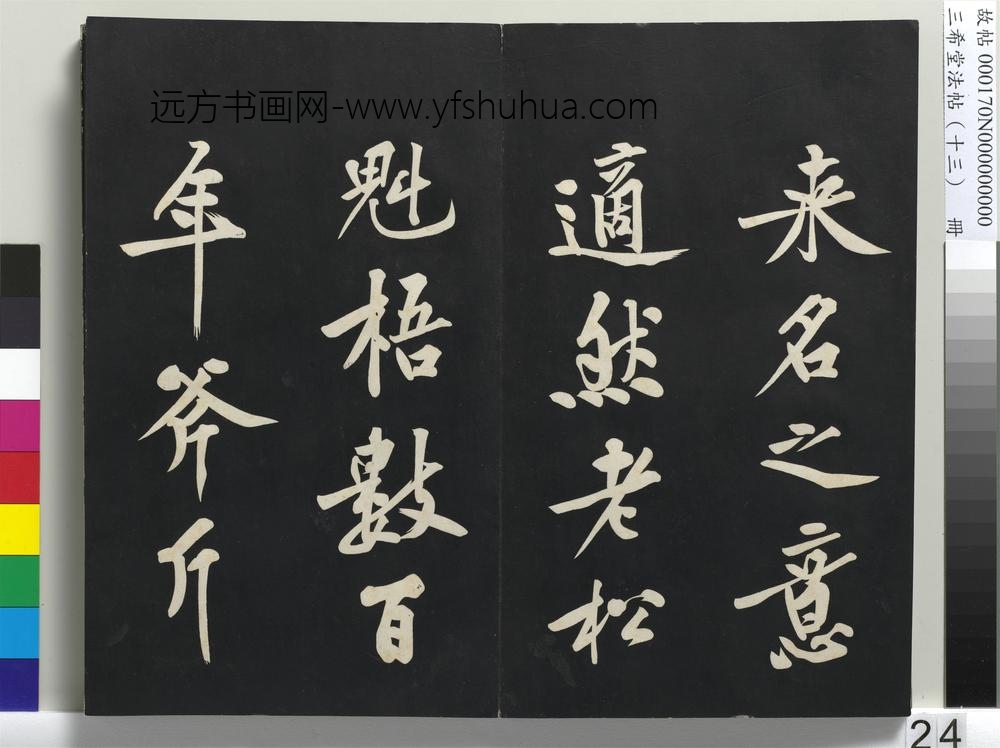 来名之意
適然老松
魁梧數百
年斧斤
远方书画网-www.yfshuhua.com
故帖 000170N000000000
三希堂法帖(十三) 册
24